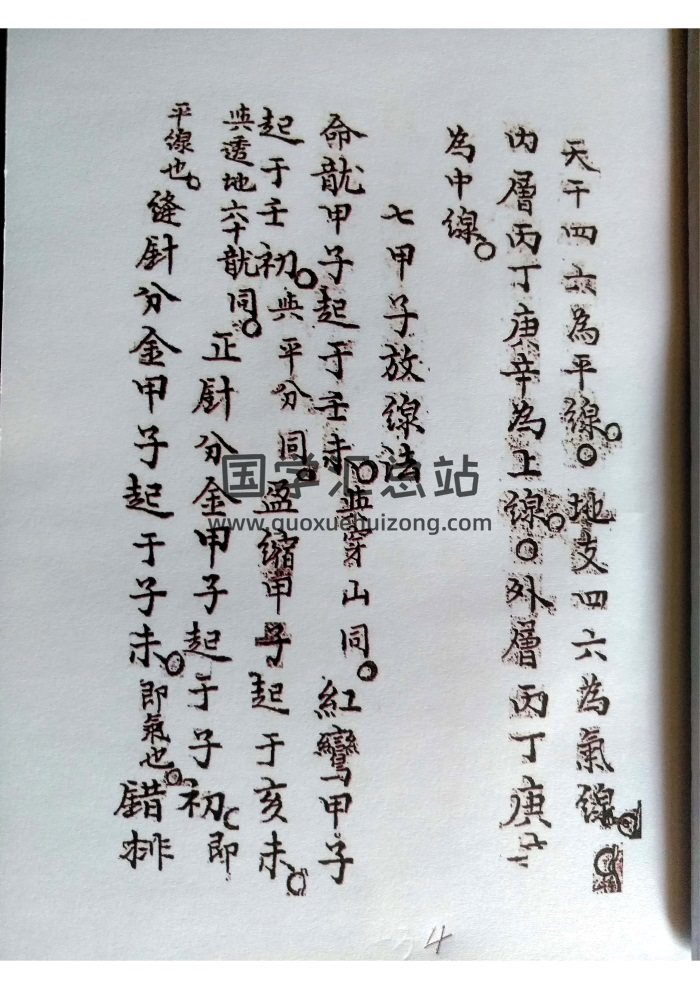 天干四六為平線。○地支四六為氣線。
内層丙丁庚辛為上線。○外層丙丁庚
為中線。
七甲子放線法
命龍甲子起于壬未。與穿山同。紅鸞甲子
起于壬初。與平分同。盈縮甲子起于亥未。
與透地六十龍同。正針分金甲子起于子初。即
平線也。縫針分金甲子起于子未。即氣也。錯排
国学汇总站
www.guoxuehuizong.com
4